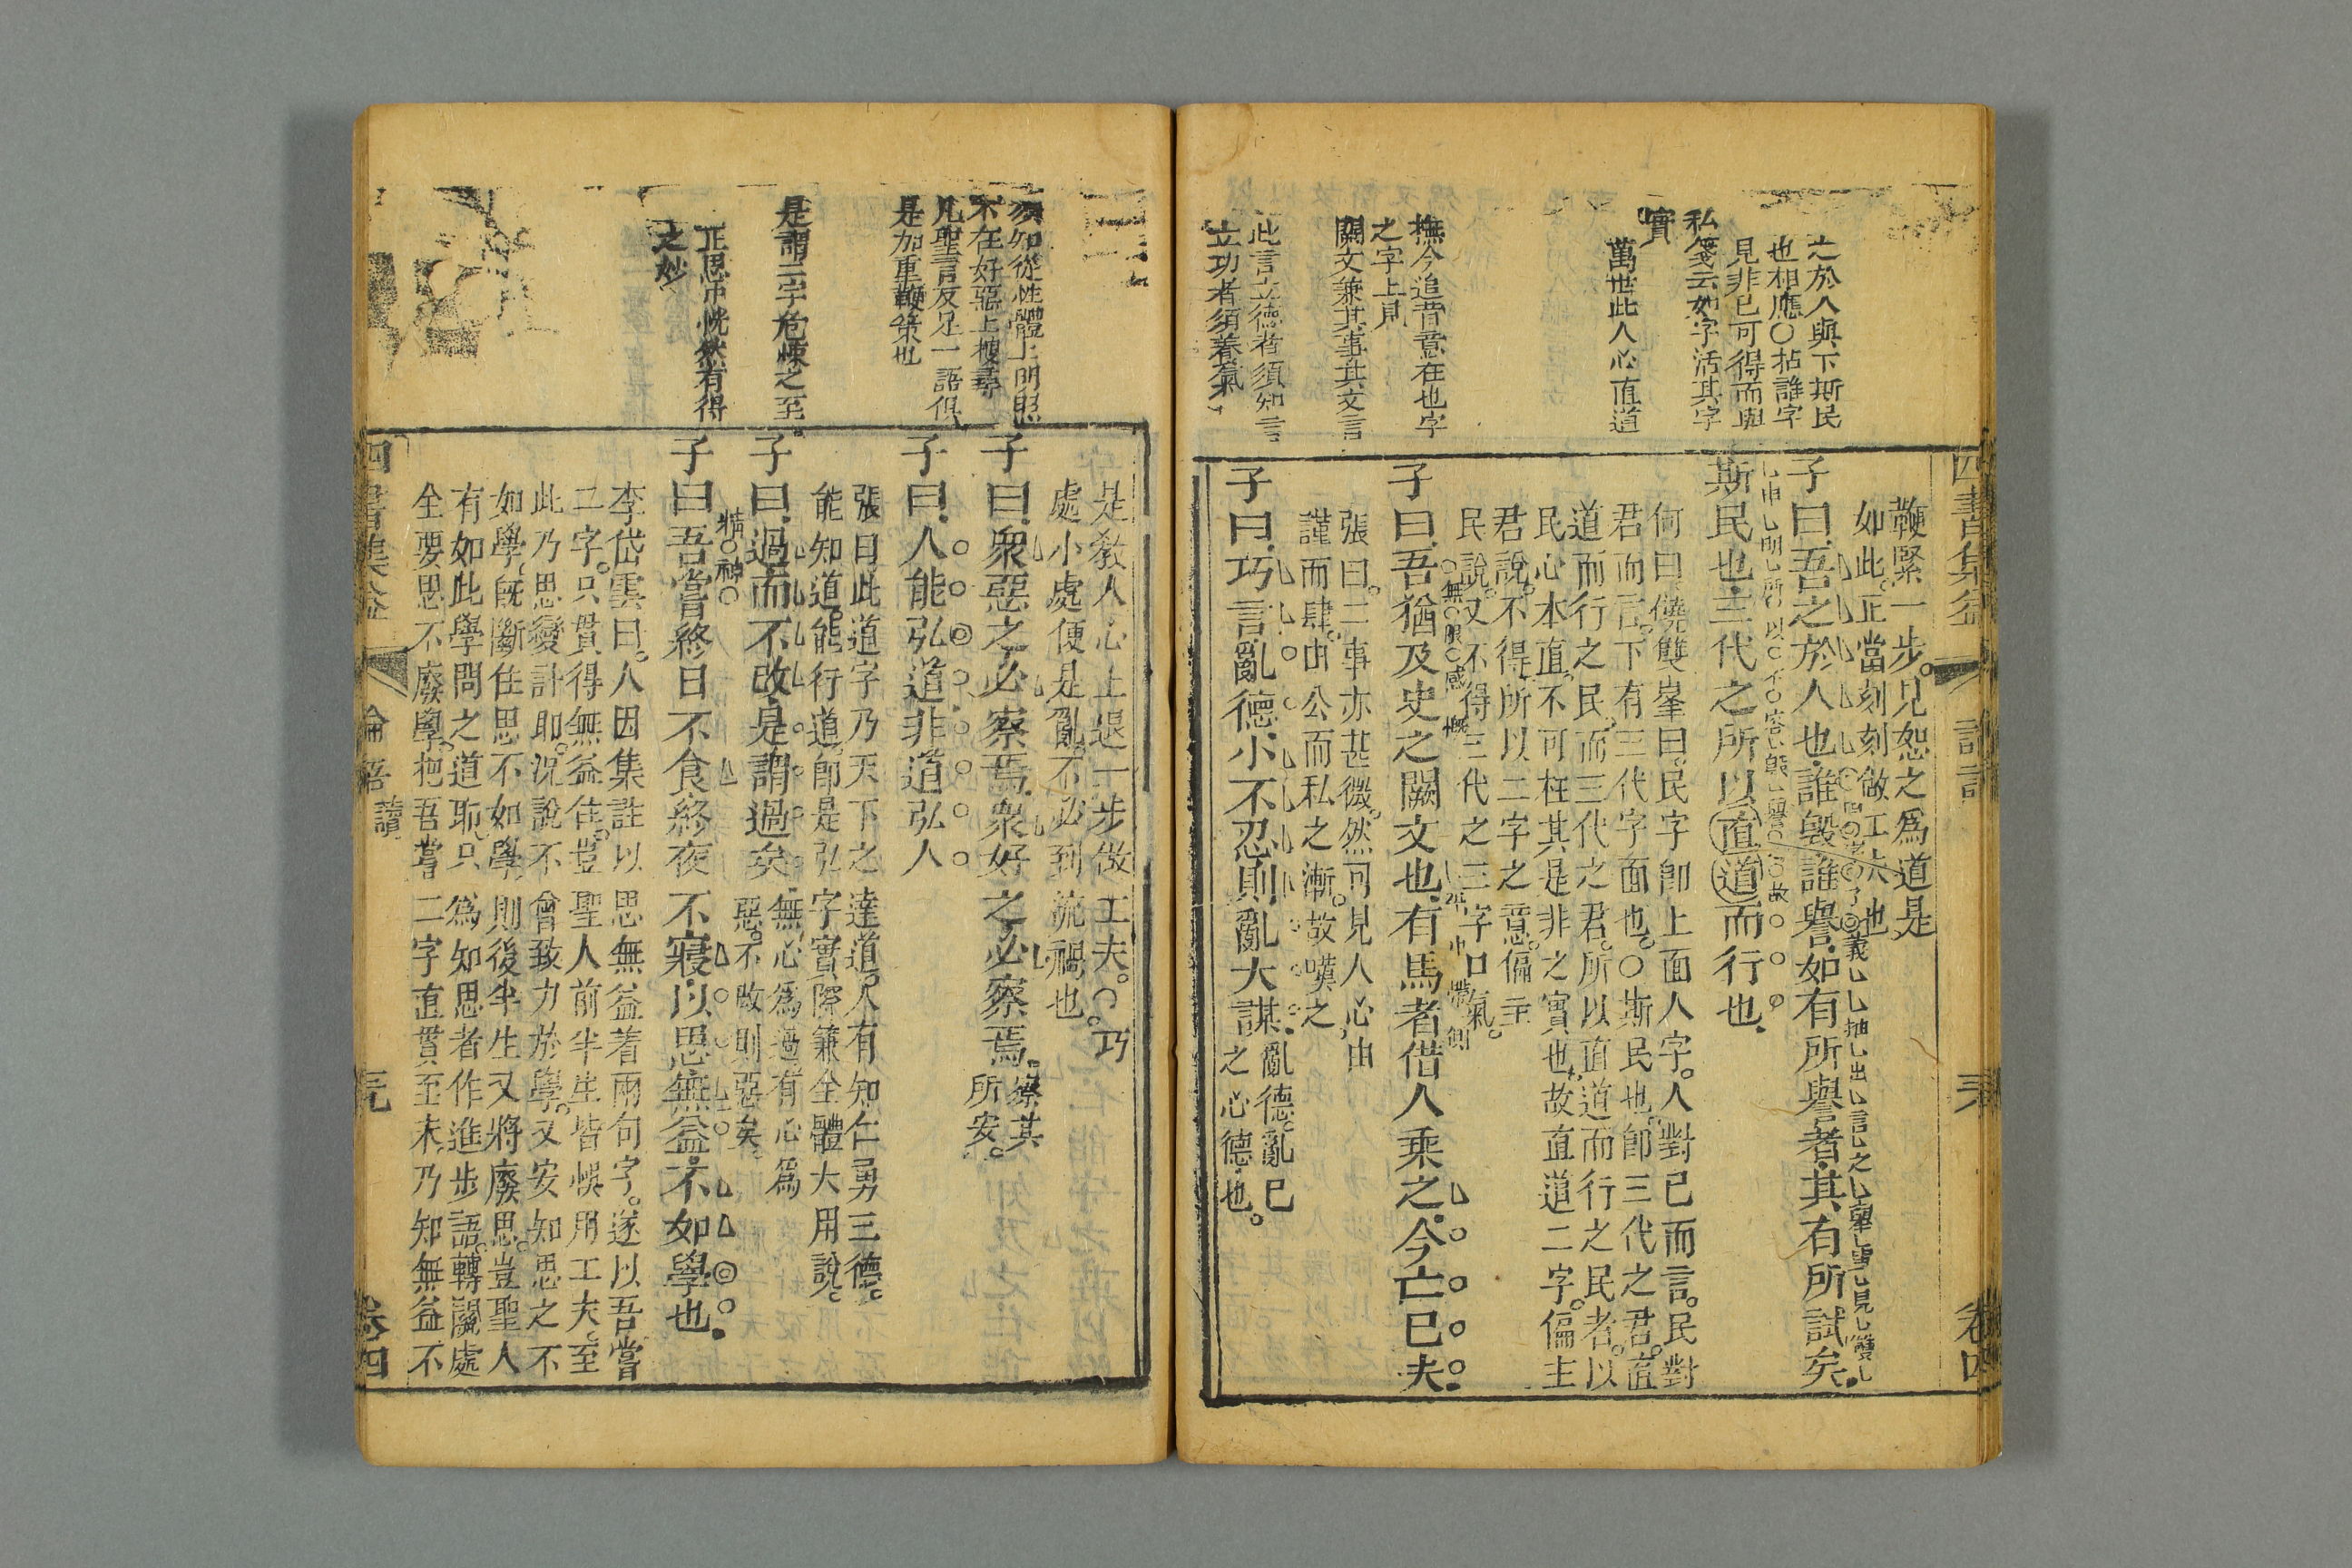 之於人與下斯民
也相應○拈誰字
見非已可得而與
私箋云如字活其字
實
萬世此人心直道
撫今追昔意在也字
之字上見
闕文兼其事其文言
此言立德者須知言
立功者須養氣
鞭緊一步見恕之為道是
如此正當刻刻做工夫也
子曰吾之於人也誰毀誰譽如有所譽者其有所試矣
斯民也三代之所以直道而行也
何曰饒雙峯曰民字卽上面人字人對已而言民對
君而言下有三代字面也○斯民也卽三代之君直
道而行之民而三代之君所以直道而行之民者以
民心本直不可枉其是非之實也故直道二字偏主
君說不得所以二字之意偏主
民說又不得三代之三字口氣
無限感慨
子曰吾猶及史之闕文也有馬者借人乘之今亡已夫
張曰二事亦甚微然可見人心由
謹而肆由公而私之漸故嘆之
子曰巧言亂德小不忍則亂大謀亂德亂已
之心德也
四書集益
卷四
須知從性體上明照
不在好惡上搜尋
凡聖言反足一語俱
是加重鞭策也
是謂二字危悚之至
正思中恍然有得
之妙
是教人心上退一步做工夫○巧
處小處便是亂不必到流禍也
子曰衆惡之必察焉衆好之必察焉察其
所安
子曰人能弘道非道弘人
張曰此道字乃天下之達道人有知仁勇三德
能知道能行道卽是弘字實際兼全體大用說
子曰過而不改是謂過矣無心為過有心為
惡不改則惡矣
精神
子曰吾嘗終日不食終夜不寢以思無益不如學也
李岱雲曰人因集註以思無益着兩句字遂以吾嘗
二字只貫得無益住豈聖人前半生皆悞用工夫至
此乃思變計耶況說不曾致力於學又安知思之不
如學旣斷住思不如學則後半生又將廢思豈聖人
有如此學問之道耶只為知思者作進步語轉關處
全要思不廢學把吾嘗二字直貫至末乃知無益不
四書集益
論語讀
卷四